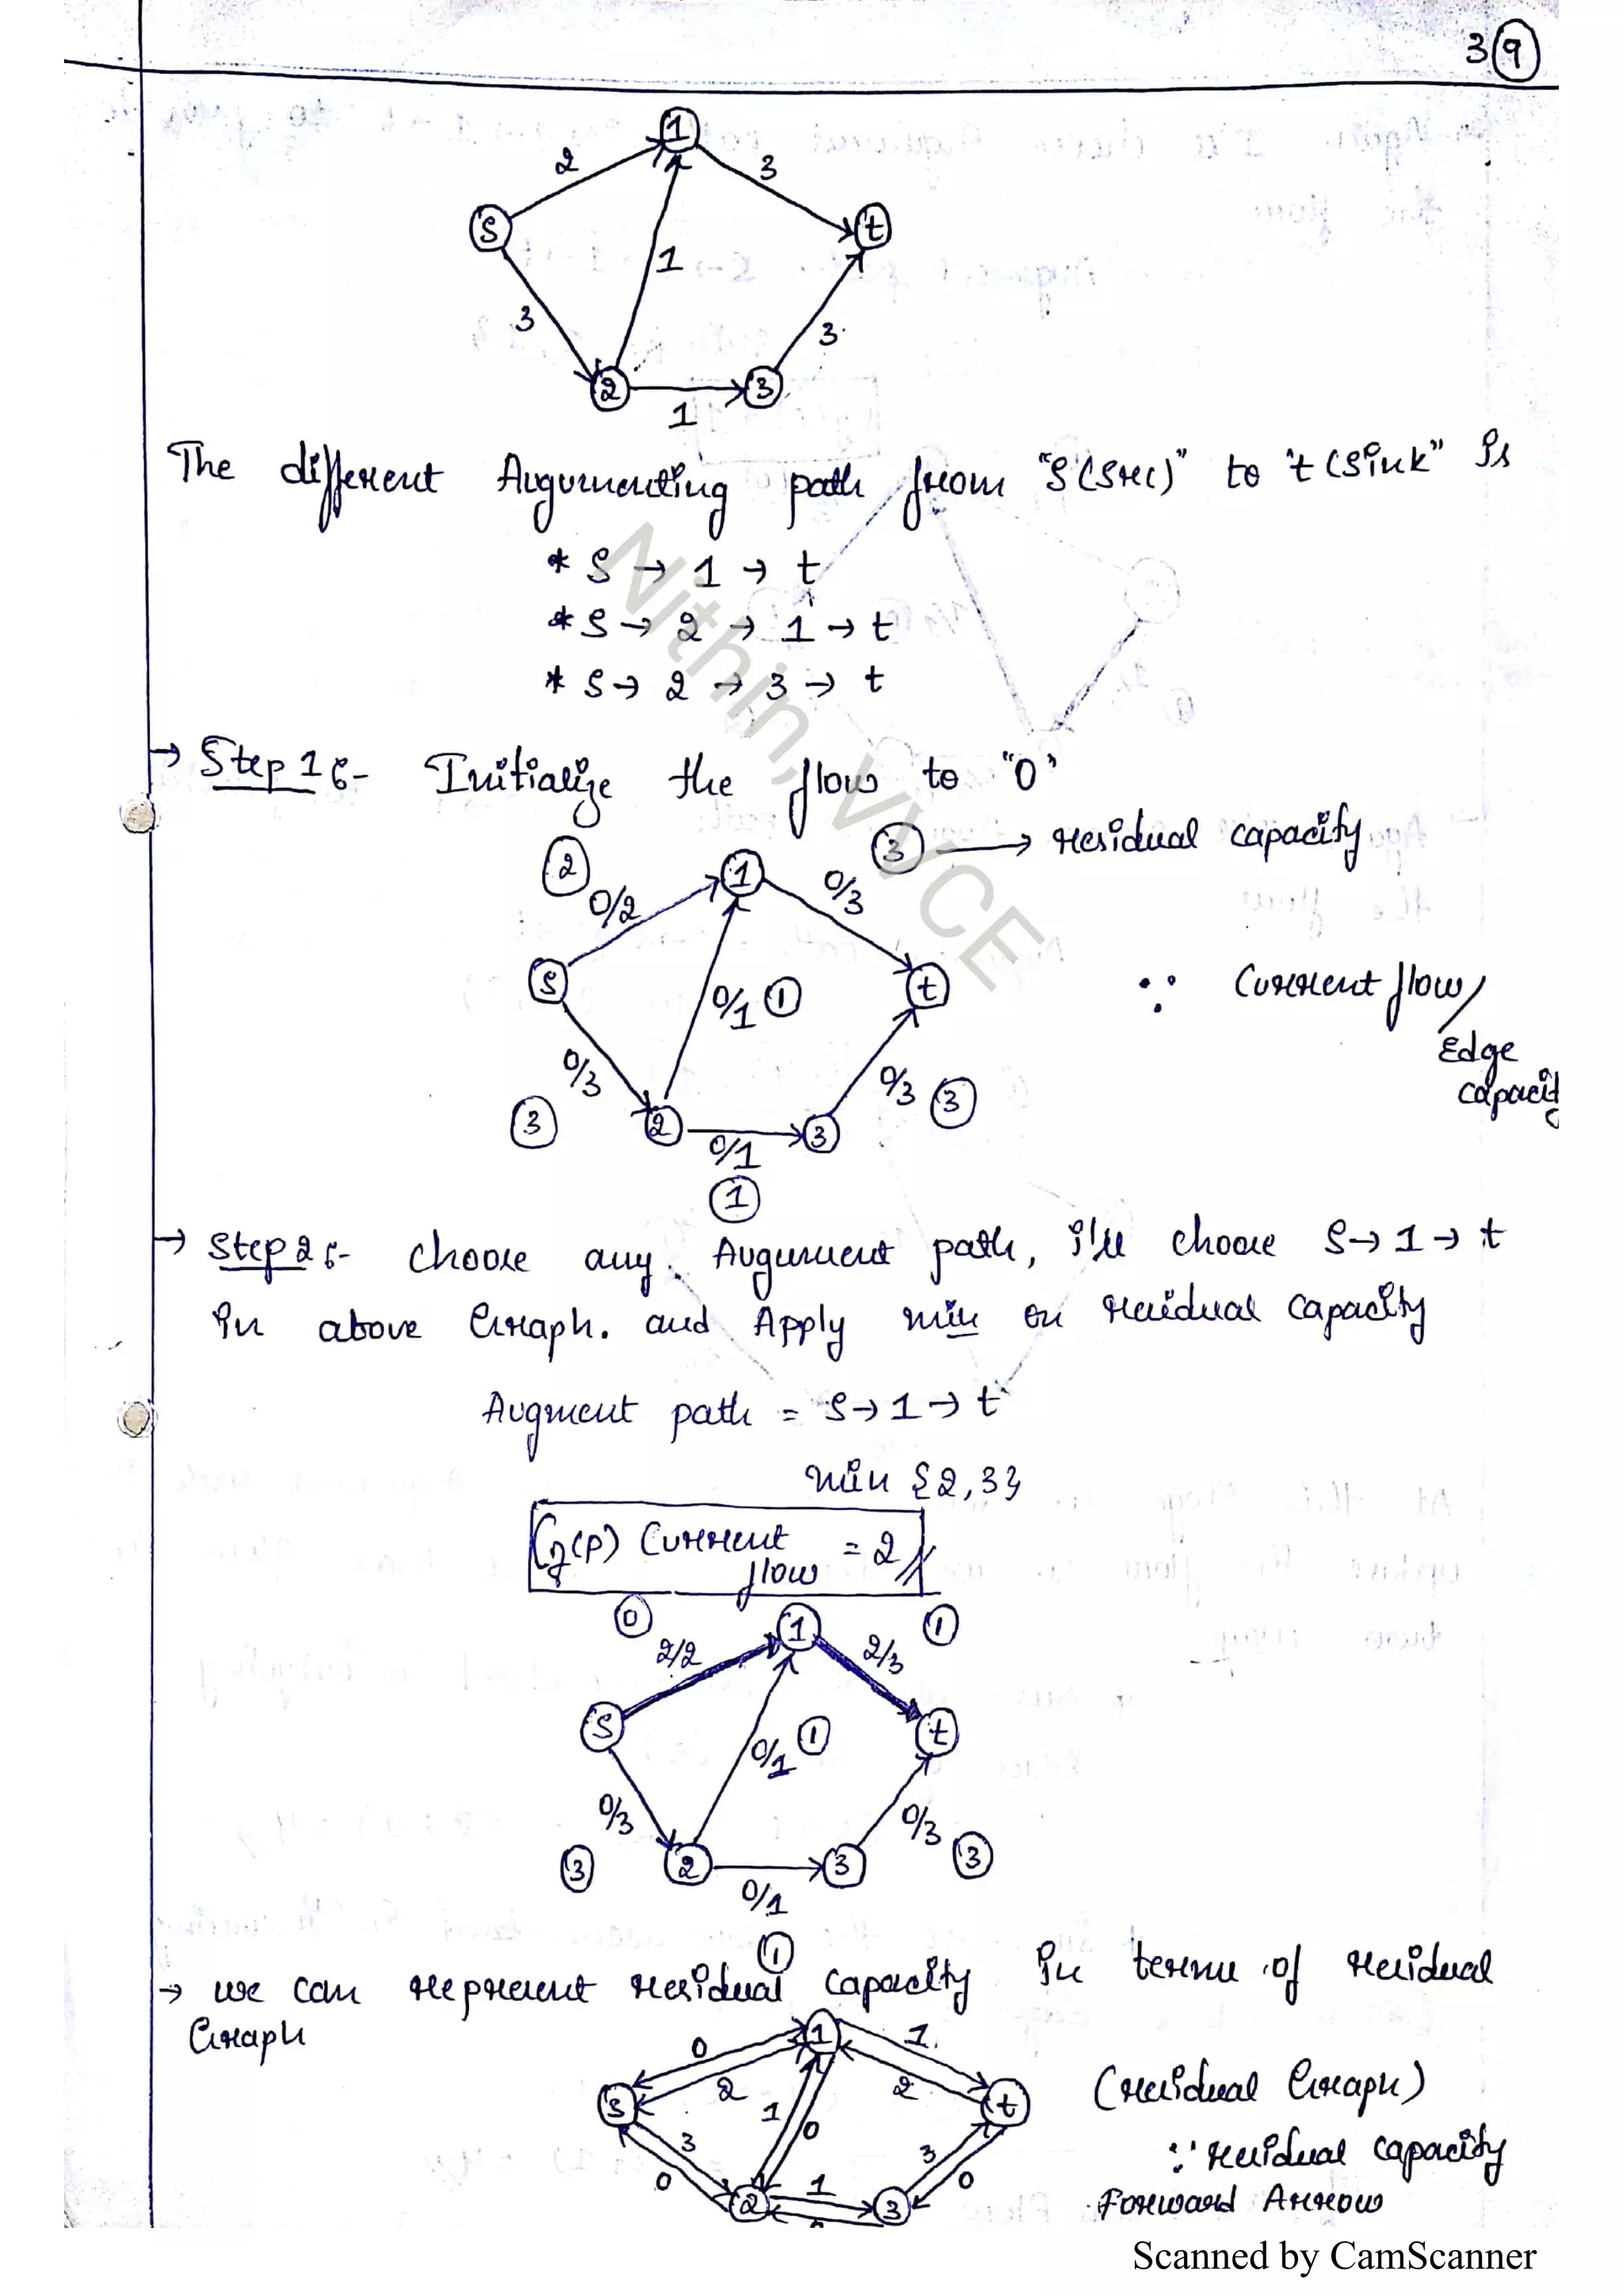 39
1
2
3
S
t
1
3
3
2
3
1
The different Augumenting path from "S(Src)" to 't(sink" is
* S → 1 → t
* S → 2 → 1 → t
* S → 2 → 3 → t
→ Step 1 :- Initialize the flow to "0"
3 → residual capacity
2
1
0/2
0/3
S
t
0/1 1
∵ Current flow/
Edge
capacit
0/3
0/3 3
3
2
3
0/1
1
→ Step 2 :- choose any Augument path, i'll choose S → 1 → t
in above Graph. and Apply min on residual capacity
Augment path = S → 1 → t
min {2,3}
Cf(P) Current flow = 2
0
1
1
2/2
2/3
S
t
0/1 1
0/3
0/3
3
2
3
3
0/1
1
→ we can represent residual capacity in terms of residual
Graph
1
0
1
2
2
S
t
(residual Graph)
1
0
3
3
∵ residual capacity
0
0
2
1
3
Forward Arrow
Nithin, VVCE
Scanned by CamScanner